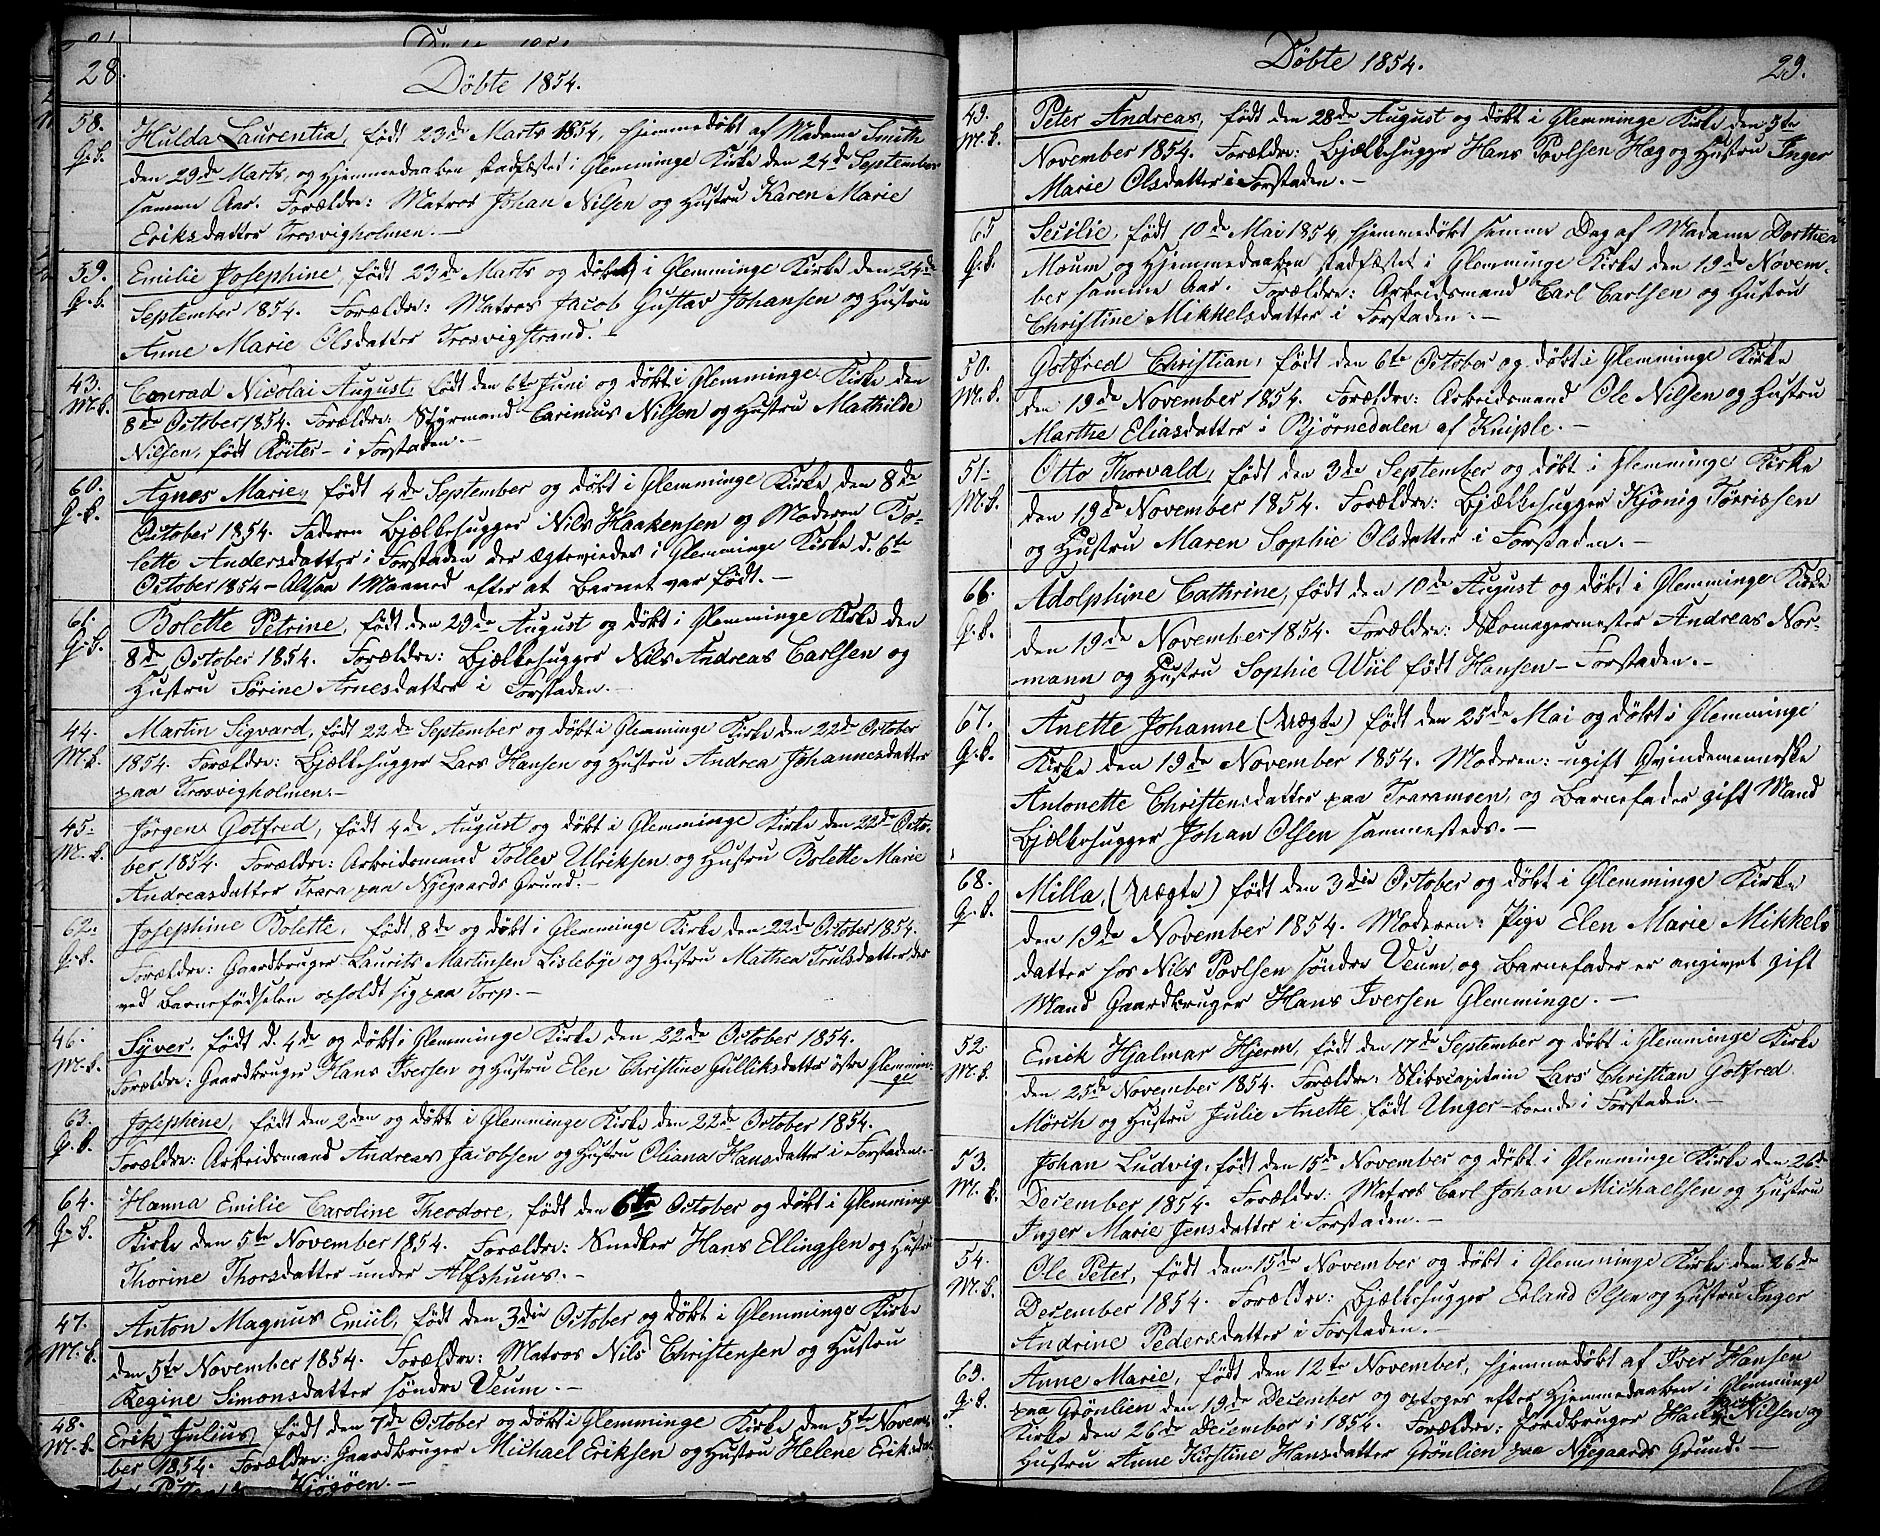 28.
Døbte 1854.
58. Hulda Laurentia, født 23de Marts 1854, hjemmedøbt af Madame Smith
Q.k. den 29de Marts, og Hjemmedaaben stadfæstet i Glemminge Kirke den 24de September
samme Aar. Forældre: Matros Johan Nilsen og Hustru Karen Marie
Eriksdatter Trosvigholmen. –
59. Emilie Josephine, født 23de Marts og døbt i Glemminge Kirke den 24de
Q.k. September 1854. Forældre: Matros Jacob Gustav Johansen og Hustru
Anne Marie Olsdatter Trosvigstrand. –
43. Conrad Nicolai August, født den 6te Juni og døbt i Glemminge Kirke den
M.k. 8de October 1854. Forældre: Styrmand Carinius Nilsen og Hustru Mathilde
Nilsen, født – i Forstaden. –
60. Agnes Marie, født 4de September og døbt i Glemminge Kirke den 8de
Q.k. October 1854. Faderen Bjælkehugger Nils Haakensen og Moderen Bo-
lette Andersdatter i Forstaden der ægteviedes i Glemminge Kirke d. 6te
October 1854 – Altsaa 1 Maaned efter at Barnet var født. –
61. Bolette Petrine, født den 29de August og døbt i Glemminge Kirke den
Q.k. 8de October 1854. Forældre: Bjælkehugger Nils Andreas Carlsen og
Hustru Sørine Arnesdatter i Forstaden. –
44. Martin Sigvard, født 22de September og døbt i Glemminge Kirke den 22de October
M.k. 1854. Forældre: Bjælkehugger Lars Hansen og Hustru Andrea Johannesdatter
paa Trosvigholmen. –
45. Jørgen Gotfred, født 4de August og døbt i Glemminge Kirke den 22de Octo-
M.k. ber 1854. Forældre: Arbeidsmand Tollev Ulriksen og Hustru Bolette Marie
Andreasdatter Trara paa Nygaards Grund. –
62. Josephine Bolette, født 8de og døbt i Glemminge Kirke den 22de October 1854.
Q.k. Forældre: Gaardbruger Laurits Martinsen Lislebye og Hustru Mathea Trulsdatter der
ved Barnefødselen opholdt sig paa Torp. –
46. Syver, født d. 4de og døbt i Glemminge Kirke den 22de October 1854.
M.k. Forældre: Gaardbruger Hans Iversen og Hustru Elen Christine Gulliksdatter østre Glemmin-
ge
63. Josephine, født den 2den og døbt i Glemminge Kirke den 22de October 1854.
Q.k. Forældre: Arbeidsmand Andreas Jacobsen og Hustru Oliana Hansdatter i Forstaden. –
64. Hanna Emilie Caroline Theodore, født den 6te October og døbt i Glemminge
Q.k. Kirke den 5te November 1854. Forældre: Snedker Hans Ellingsen og Hustru
Thorine Thorsdatter under Alfshuus. –
47. Anton Magnus Emiil, født den 3die October og døbt i Glemminge Kirke
M.k. den 5te November 1854. Forældre: Matros Nils Christensen og Hustru
Regine Simonsdatter søndre Veum. –
48. Erik Julius, født den 7de October og døbt i Glemminge Kirke den 5te Novem-
M.k. ber 1854. Forældre: Gaardbruger Michael Eriksen og Hustru Helene Eriksdat
Kjøgøen. –
Døbte 1854.
29.
49. Peter Andreas, født den 28de August og døbt i Glemminge Kirke den 5te
M.k. November 1854. Forældre: Bjælkehugger Hans Povlsen Høg og Hustru Inger
Marie Olsdatter i Forstaden. –
65 Secilie, født 10de Mai 1854, hjemmedøbt samme Dag af Madame Dorthea
Q.k. Moum, og Hjemmedaaben stadfæstet i Glemminge Kirke den 19de Novem-
ber samme Aar. Forældre: Arbeidsmand Carl Carlsen og Hustru
Christine Mikkelsdatter i Forstaden. –
50. Gotfred Christian, født den 6te October og døbt i Glemminge Kirke
M.k. den 19de November 1854. Forældre: Arbeidsmand Ole Nilsen og Hustru
Marthe Eliasdatter i Bjørnedalen af Kniple. –
51. Otto Thorvald, født den 3de September og døbt i Glemminge Kirke
M.k. den 19de November 1854. Forældre: Bjælkehugger Kjønig Tørrissen
og Hustru Maren Sophie Olsdatter i Forstaden. –
66. Adolphine Cathrine, født den 10de August og døbt i Glemminge Kirke
Q.k. den 19de November 1854. Forældre: Skomagermester Andreas Nor-
mann og Hustru Sophie Wiil født Hansen – Forstaden. –
67. Anette Johanne (Uægte) født den 25de Mai og døbt i Glemminge
Q.k. Kirke den 19de November 1854. Moderen: ugift Qvindemenneske
Antonette Christensdatter paa Traramoen, og Barnefader gift Mand
Bjælkehugger Johan Olsen sammesteds. –
68. Milla, (Uægte) født den 3die October og døbt i Glemminge Kirke
Q.k. den 19de November 1854. Moderen: Pige Elen Marie Mikkels
datter hos Nils Povlsen søndre Veum, og Barnefader er angivet gift
Mand Gaardbruger Hans Iversen Glemminge. –
52. Emik Hjalmar Hjerm, født den 17de September og døbt i Glemminge Kirke
M.k. den 25de November 1854. Forældre: Skibscapitain Lars Christian Gotfred
Mørch og Hustru Julie Anette født Unger – boende i Forstaden. –
53. Johan Ludvig, født den 15de November og døbt i Glemminge Kirke den 26de
M.k. December 1854. Forældre: Matros Carl Johan Michaelsen og Hustru
Inger Marie Jensdatter i Forstaden. –
54. Ole Peter, født den 15de November og døbt i Glemminge Kirke den 26de
M.k. December 1854. Forældre: Bjælkehugger Erland Olsen og Hustru Inger
Andrine Pedersdatter i Forstaden. –
69. Anne Marie, født den 12te November, hjemmedøbt af Iver Hansen
Q.k. paa Grønlien den 19de December og optoges efter Hjemmedaaben i Glemminge
Kirke den 26de December i 1854. Forældre: Jordbruger Hans Nilsen og
Hustru Anne Kirstine Hansdatter Grønlien paa Nygaards Grund. –